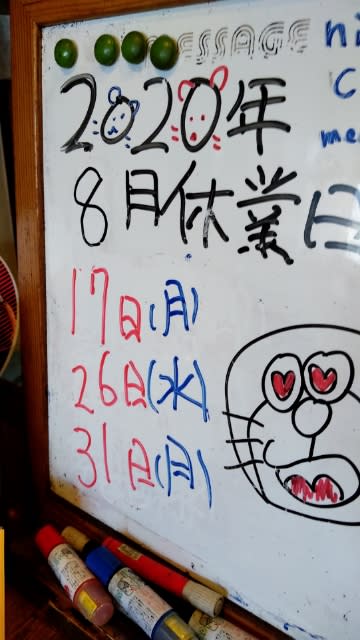 MESSAGE
2020年
8月休業日
17日(月)
26日(水)
31日(月)